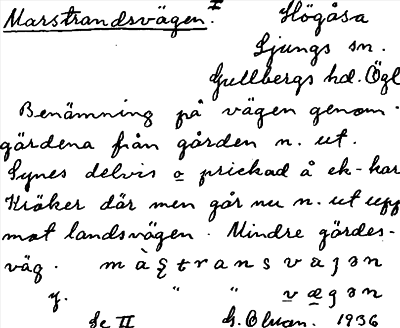 Marstrandsvägen. I Högåsa
Ljungs sn.
Gullbergs hd. Ögl
Benämning på vägen genom
gärdena från gården n. ut.
Synes delvis o prickad å ek-kar
Kröker där men går nu n. ut upp
mot landsvägen. Mindre gärdes-
väg.
y. " "
Se II G. Ohson. 1936